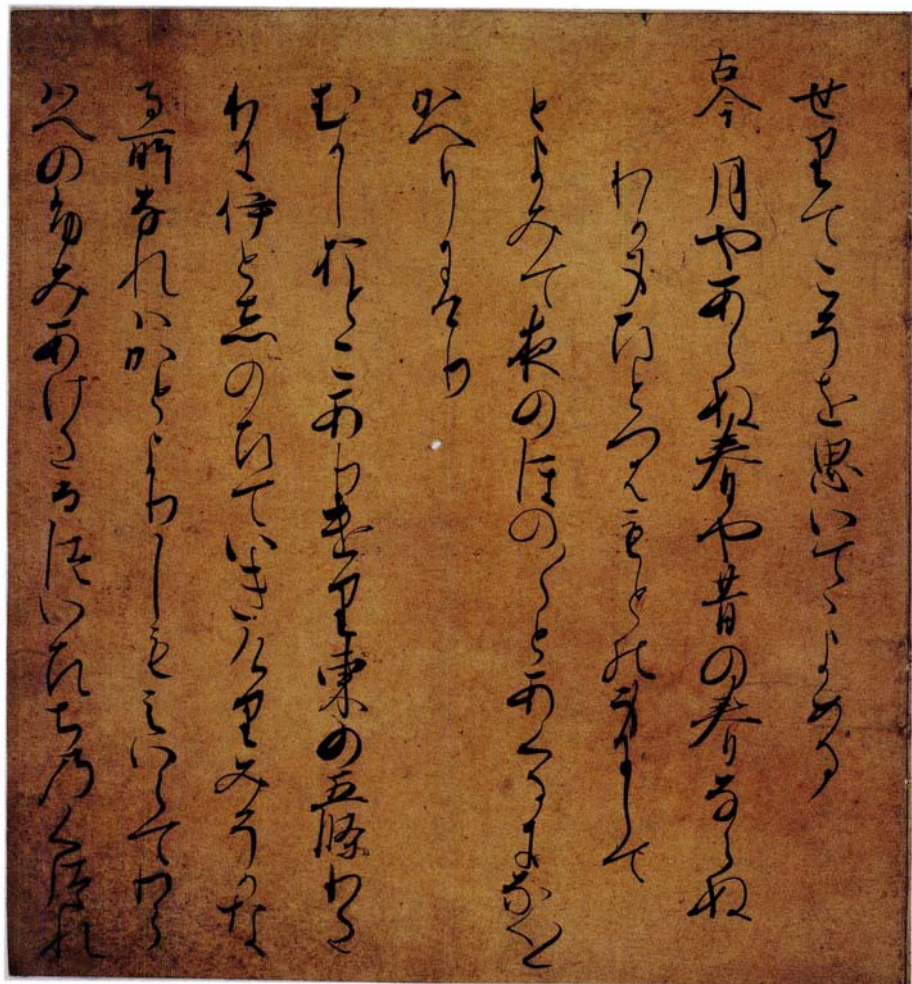 せりてこそを思いてゝよめる
古今 月やあらぬ春や昔の春ならぬ
わか身ひとつはもとの身にして
とよみて夜のほの〱とあくるになく〱
かへりにけり
むかしおとこありけり東の五條わた
りにいとしのひていきけりみそかな
る所なれはかとよりしもえいらてわら
はへのふみあけたるついひちのくつれ